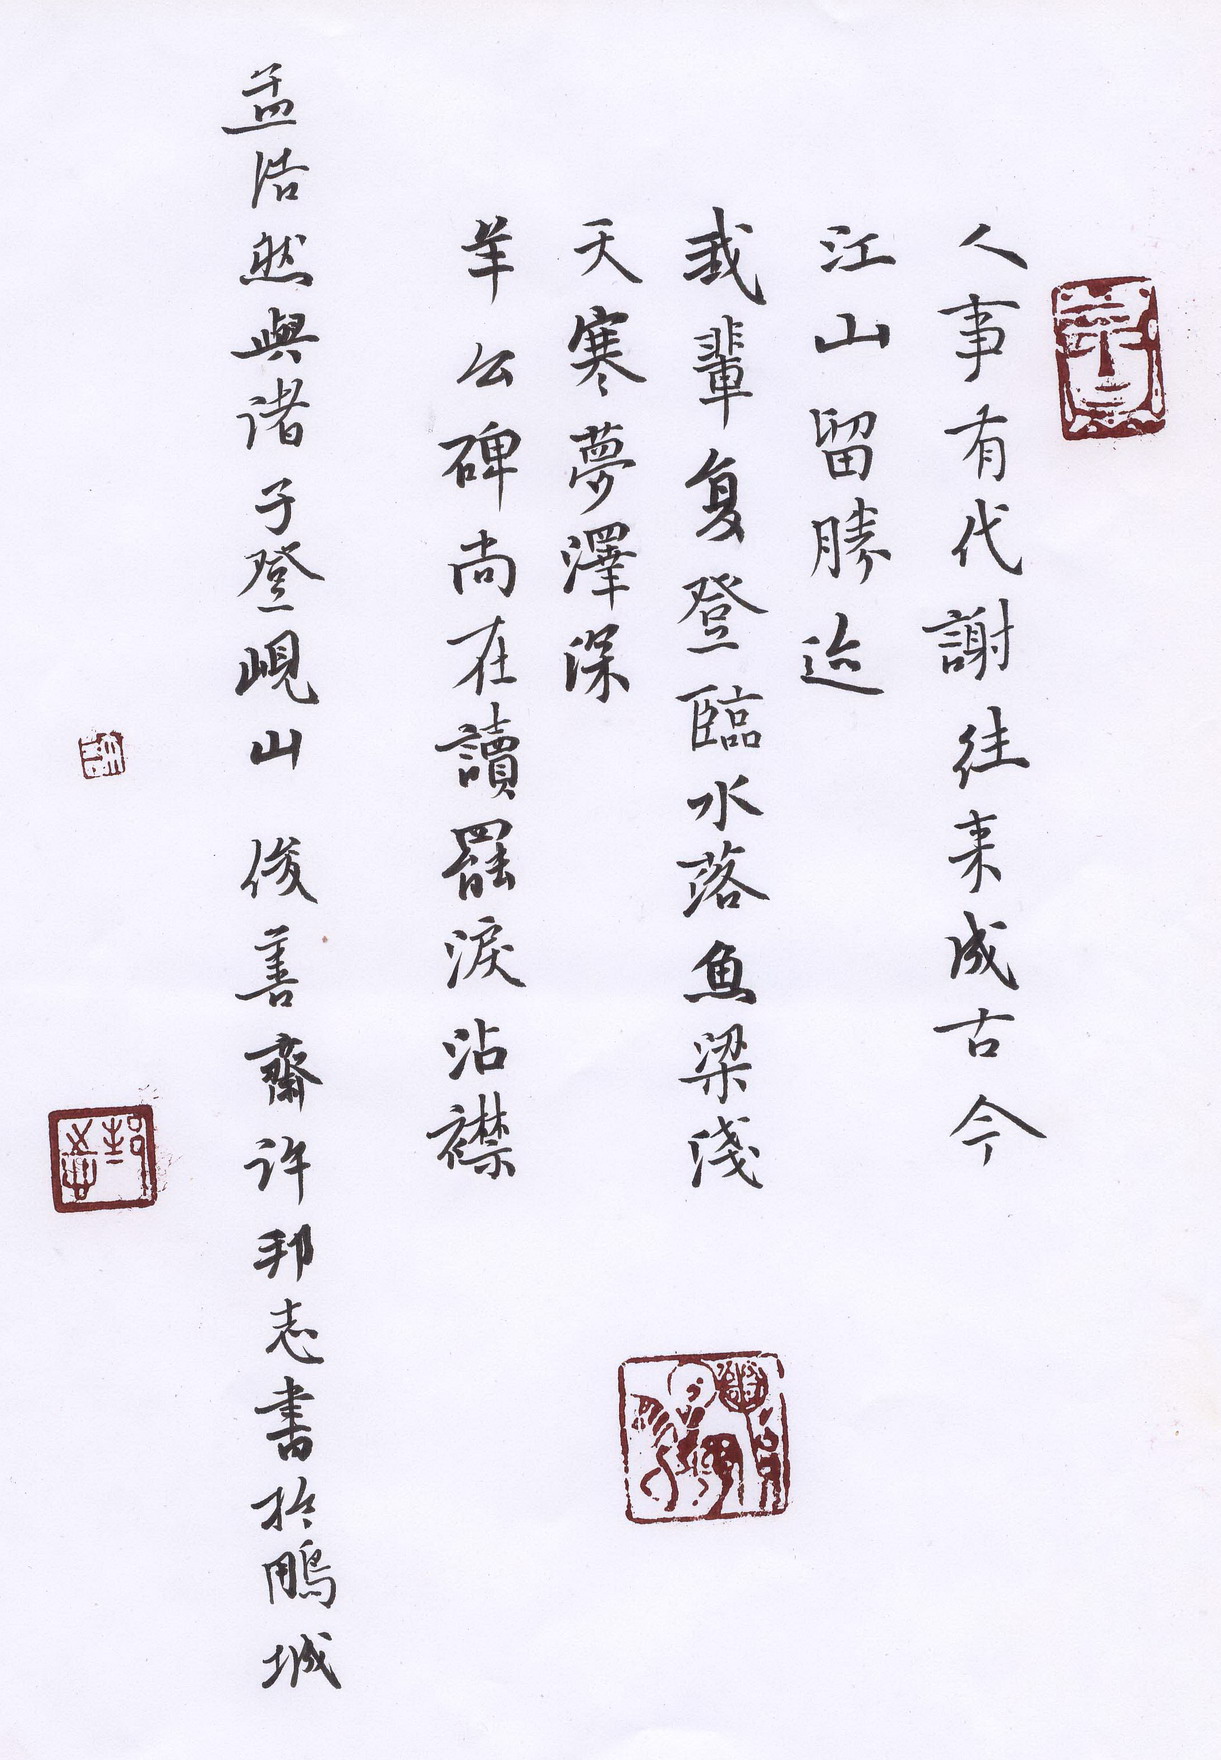 人事有代謝往来成古今
江山留勝迹
我輩复登臨水落魚梁淺
天寒夢澤深
羊公碑尚在讀罷淚沾襟
孟浩然與诸子登峴山 俊善齋许邦志書於鵬城